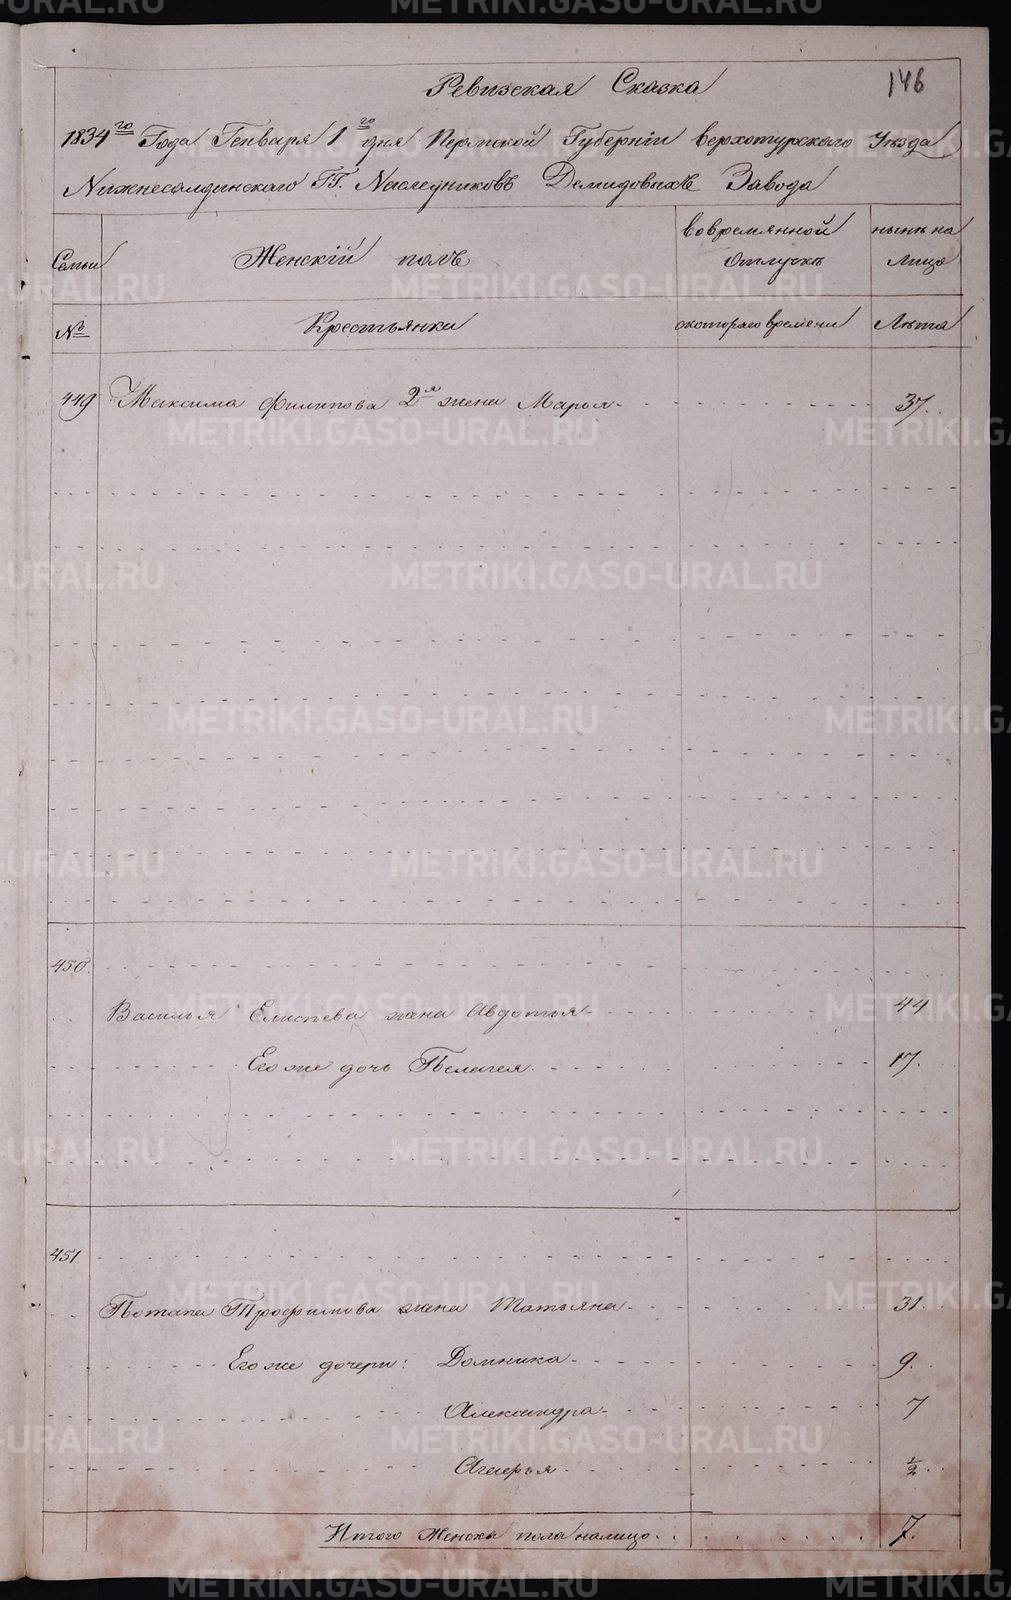 146
Ревизская Сказка
1834го Года Генваря 1го дня Пермской Губернiи Верхотурскаго Уѣзда
Нижнесалдинскаго ГГ. Наследниковъ Демидовыхъ Завода
Семьи Женскiй полъ вовремянной отлучкѣ нынѣ на лицо
№ Крестьянки скотораго времени Лѣта
449 Максима Филипова 2я жена Марья 37.
450.
Василья Елисѣева жена Авдотья 44
Его же дочь Пелагея 17.
451
Потапа Трофимова жена Татьяна 31
Его же дочери: Домника 9.
Александра 7
½
Итого Женска пола налицо 7.
METRIKI.GASO-URAL.RU